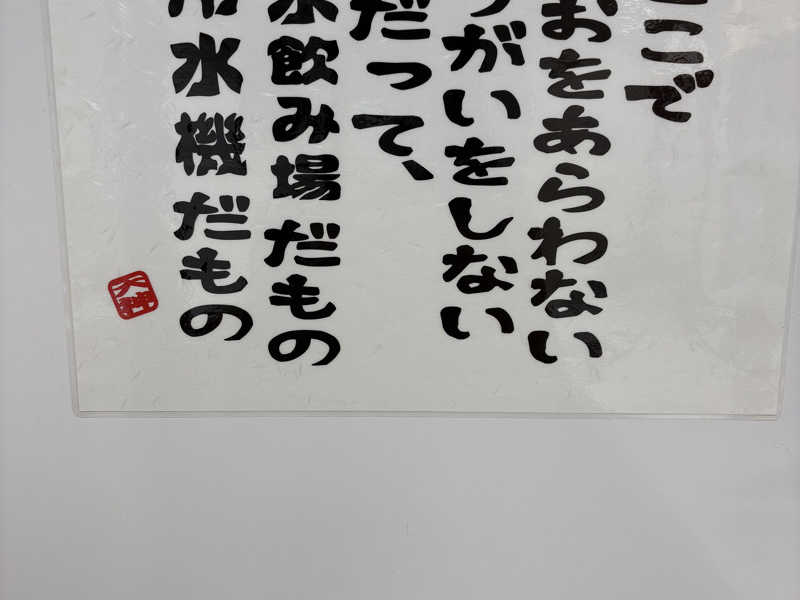 こで
おをあらわない
がいをしない
だって、
水飲み場だもの
水機だもの
天神